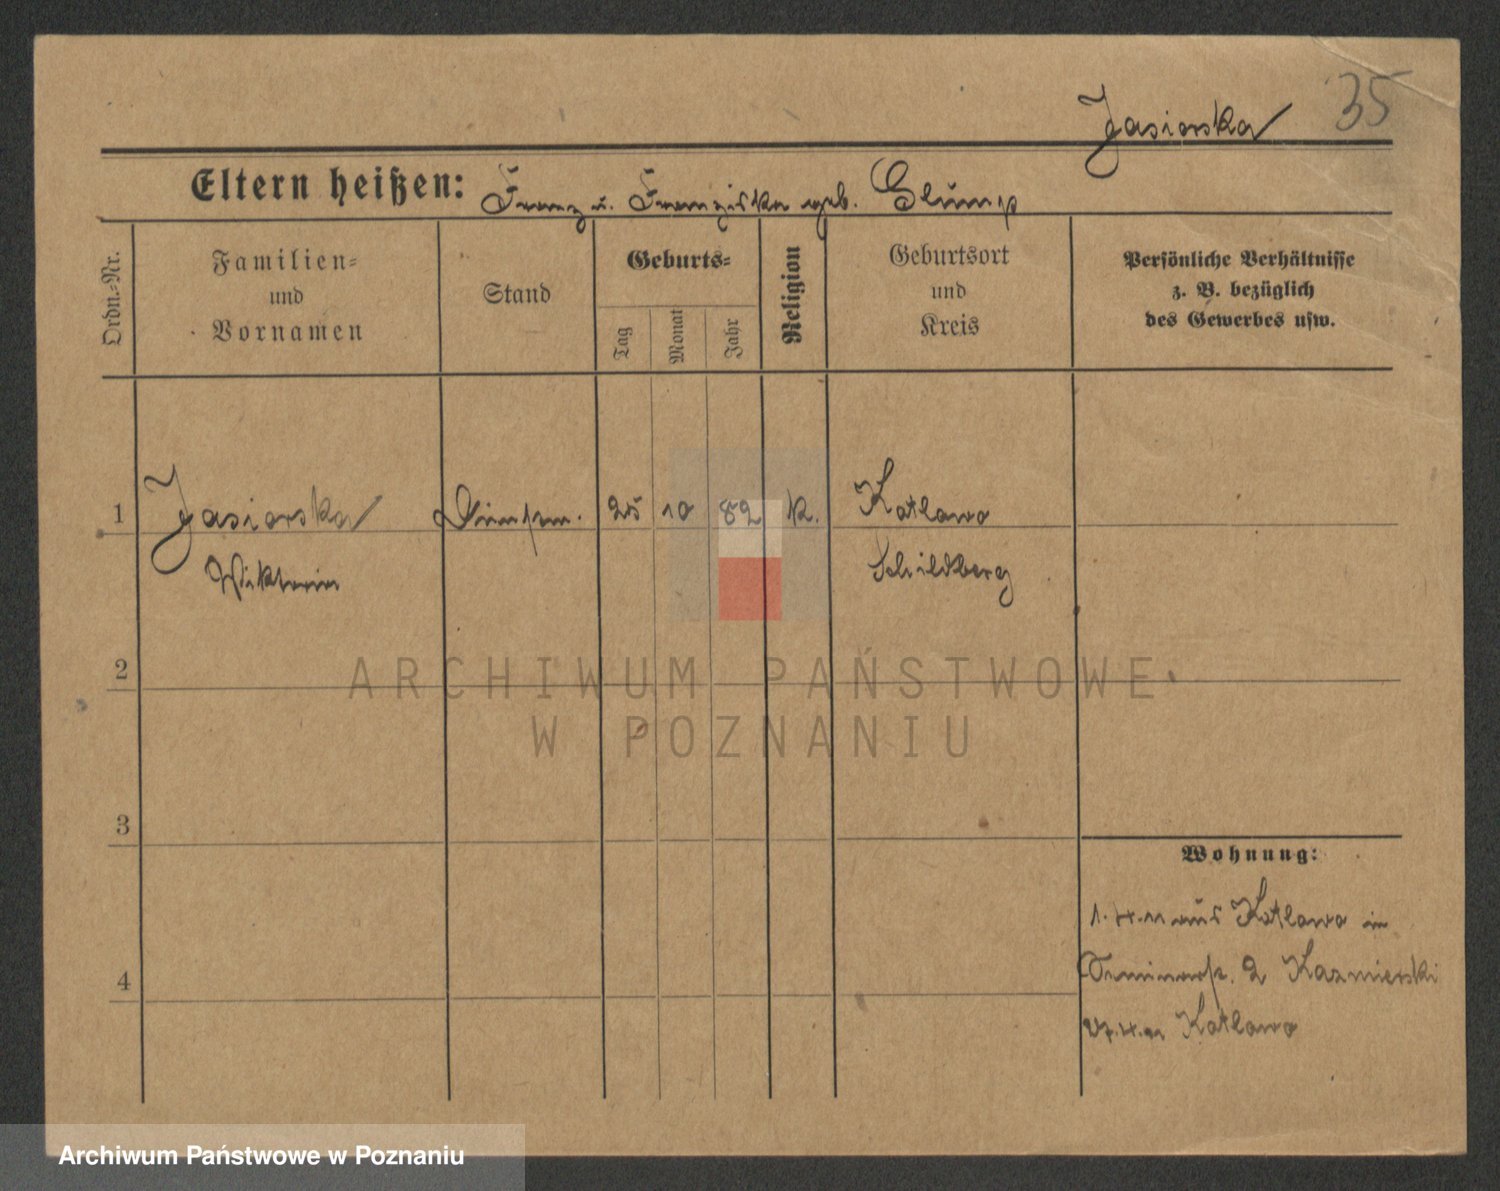 35
Jasiorska
Eltern heißen: Franz u. Franziska geb. Glump
Ordn.-Nr.
Familien-
und
Vornamen
Stand
Geburts-
Tag
Monat
Jahr
Religion
Geburtsort
und
Kreis
Persönliche Verhältnisse
z. B. bezüglich
des Gewerbes usw.
1 Jasiorska 25 10 82 k. Kotlowo
Wiktoria Schildberg
2
3
4
Wohnung:
1.4.11 aus Kotlowo in
2 Kazmierski
Kotlowo
ARCHIWUM PAŃSTWOWE
W POZNANIU
Archiwum Państwowe w Poznaniu